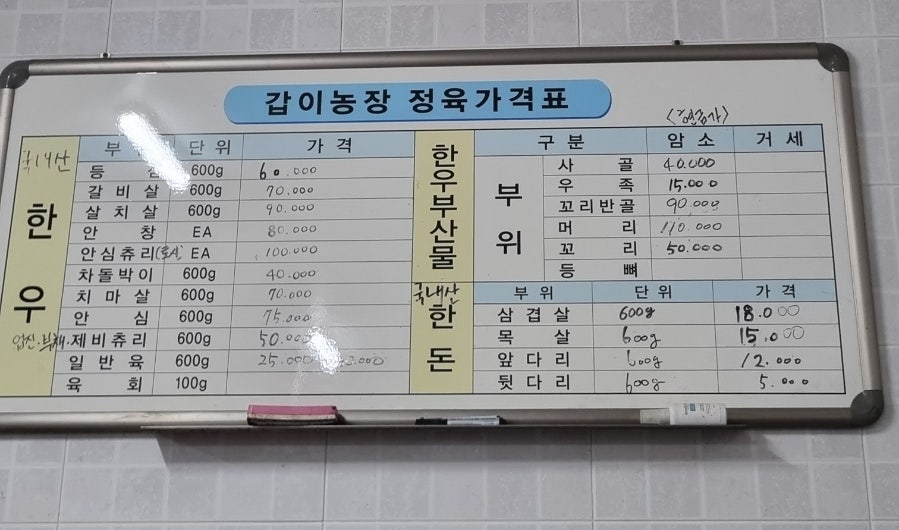 갑이농장 정육가격표
<현금가>
국내산 한우
부위 단위 가격
등심 600g 60.000
갈비살 600g 70.000
살치살 600g 90.000
안창 EA 80.000
안심츄리 EA 100.000
차돌박이 600g 40.000
치마살 600g 70.000
안심 600g 75.000
제비츄리 600g 50.000
일반육 600g 25.000
육회 100g
한우부산물
구분 암소 거세
부위
사골 40.000
우족 15.000
꼬리반골 90.000
머리 110.000
꼬리 50.000
등뼈
국내산 한돈
부위 단위 가격
삼겹살 600g 18.000
목살 600g 15.000
앞다리 600g 12.000
뒷다리 600g 5.000